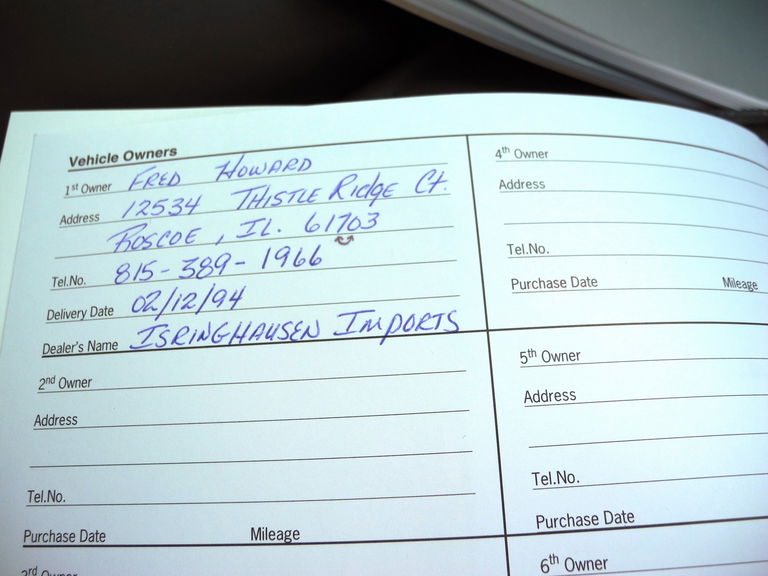 Vehicle Owners
1st Owner FRED HOWARD
Address 12534 THISTLE RIdgE Ct.
ROSCOE, IL. 61703
Tel.No. 815-389-1966
Delivery Date 02/12/94
Dealer's Name ISRINGHAUSEN IMPORTS
2nd Owner
Address
Tel.No.
Purchase Date Mileage
3rd Owner
4th Owner
Address
Tel.No.
Purchase Date Mileage
5th Owner
Address
Tel.No.
Purchase Date
6th Owner